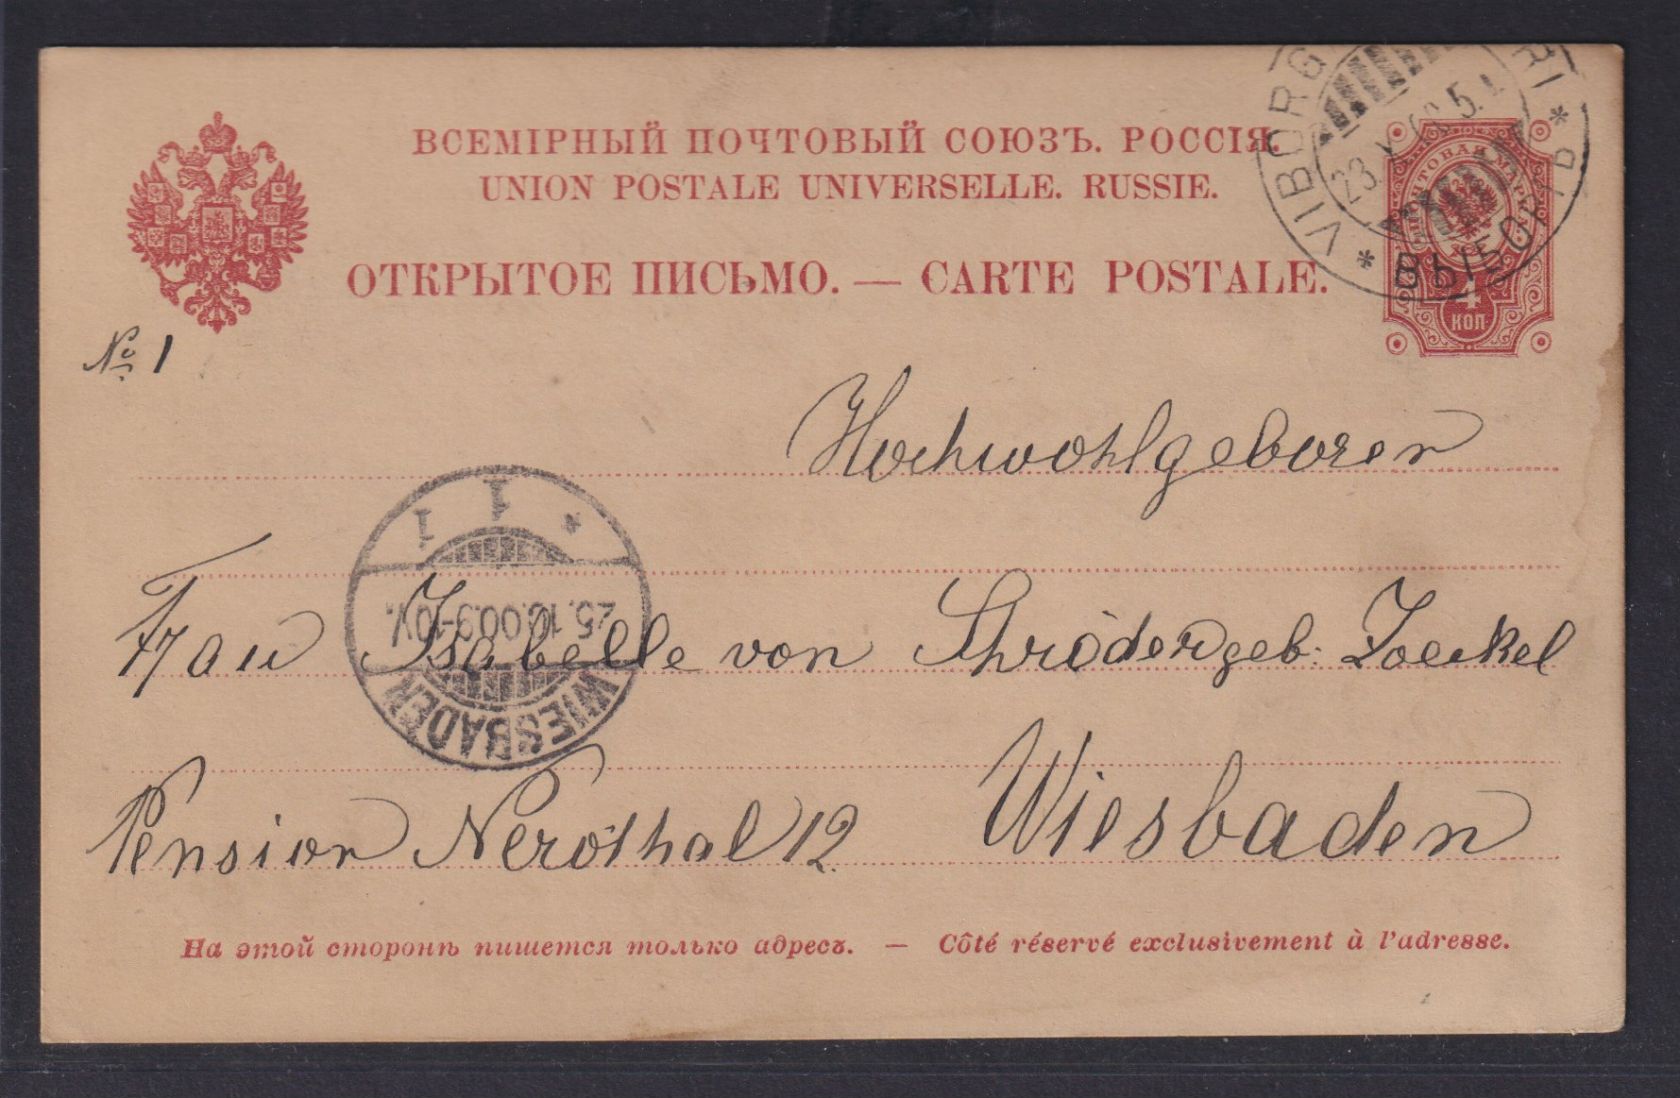 ВСЕМІРНЫЙ ПОЧТОВЫЙ СОЮЗЪ. РОССІЯ.
UNION POSTALE UNIVERSELLE. RUSSIE.
ОТКРЫТОЕ ПИСЬМО. — CARTE POSTALE.
VIBORG
ВЫБОРГЪ
ПОЧТОВАЯ МАРКА
4
КОП
№ 1
Hochwohlgeboren
Frau Isabelle von Schröder geb. Zoeckel
Pension Nerothal 12. Wiesbaden
1
1
25.10.00.9-10V.
WIESBADEN
На этой сторонѣ пишется только адресъ. — Côté réservé exclusivement à l'adresse.